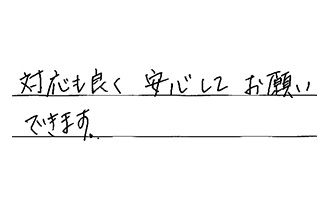 対応も良く 安心して お願い
できます。